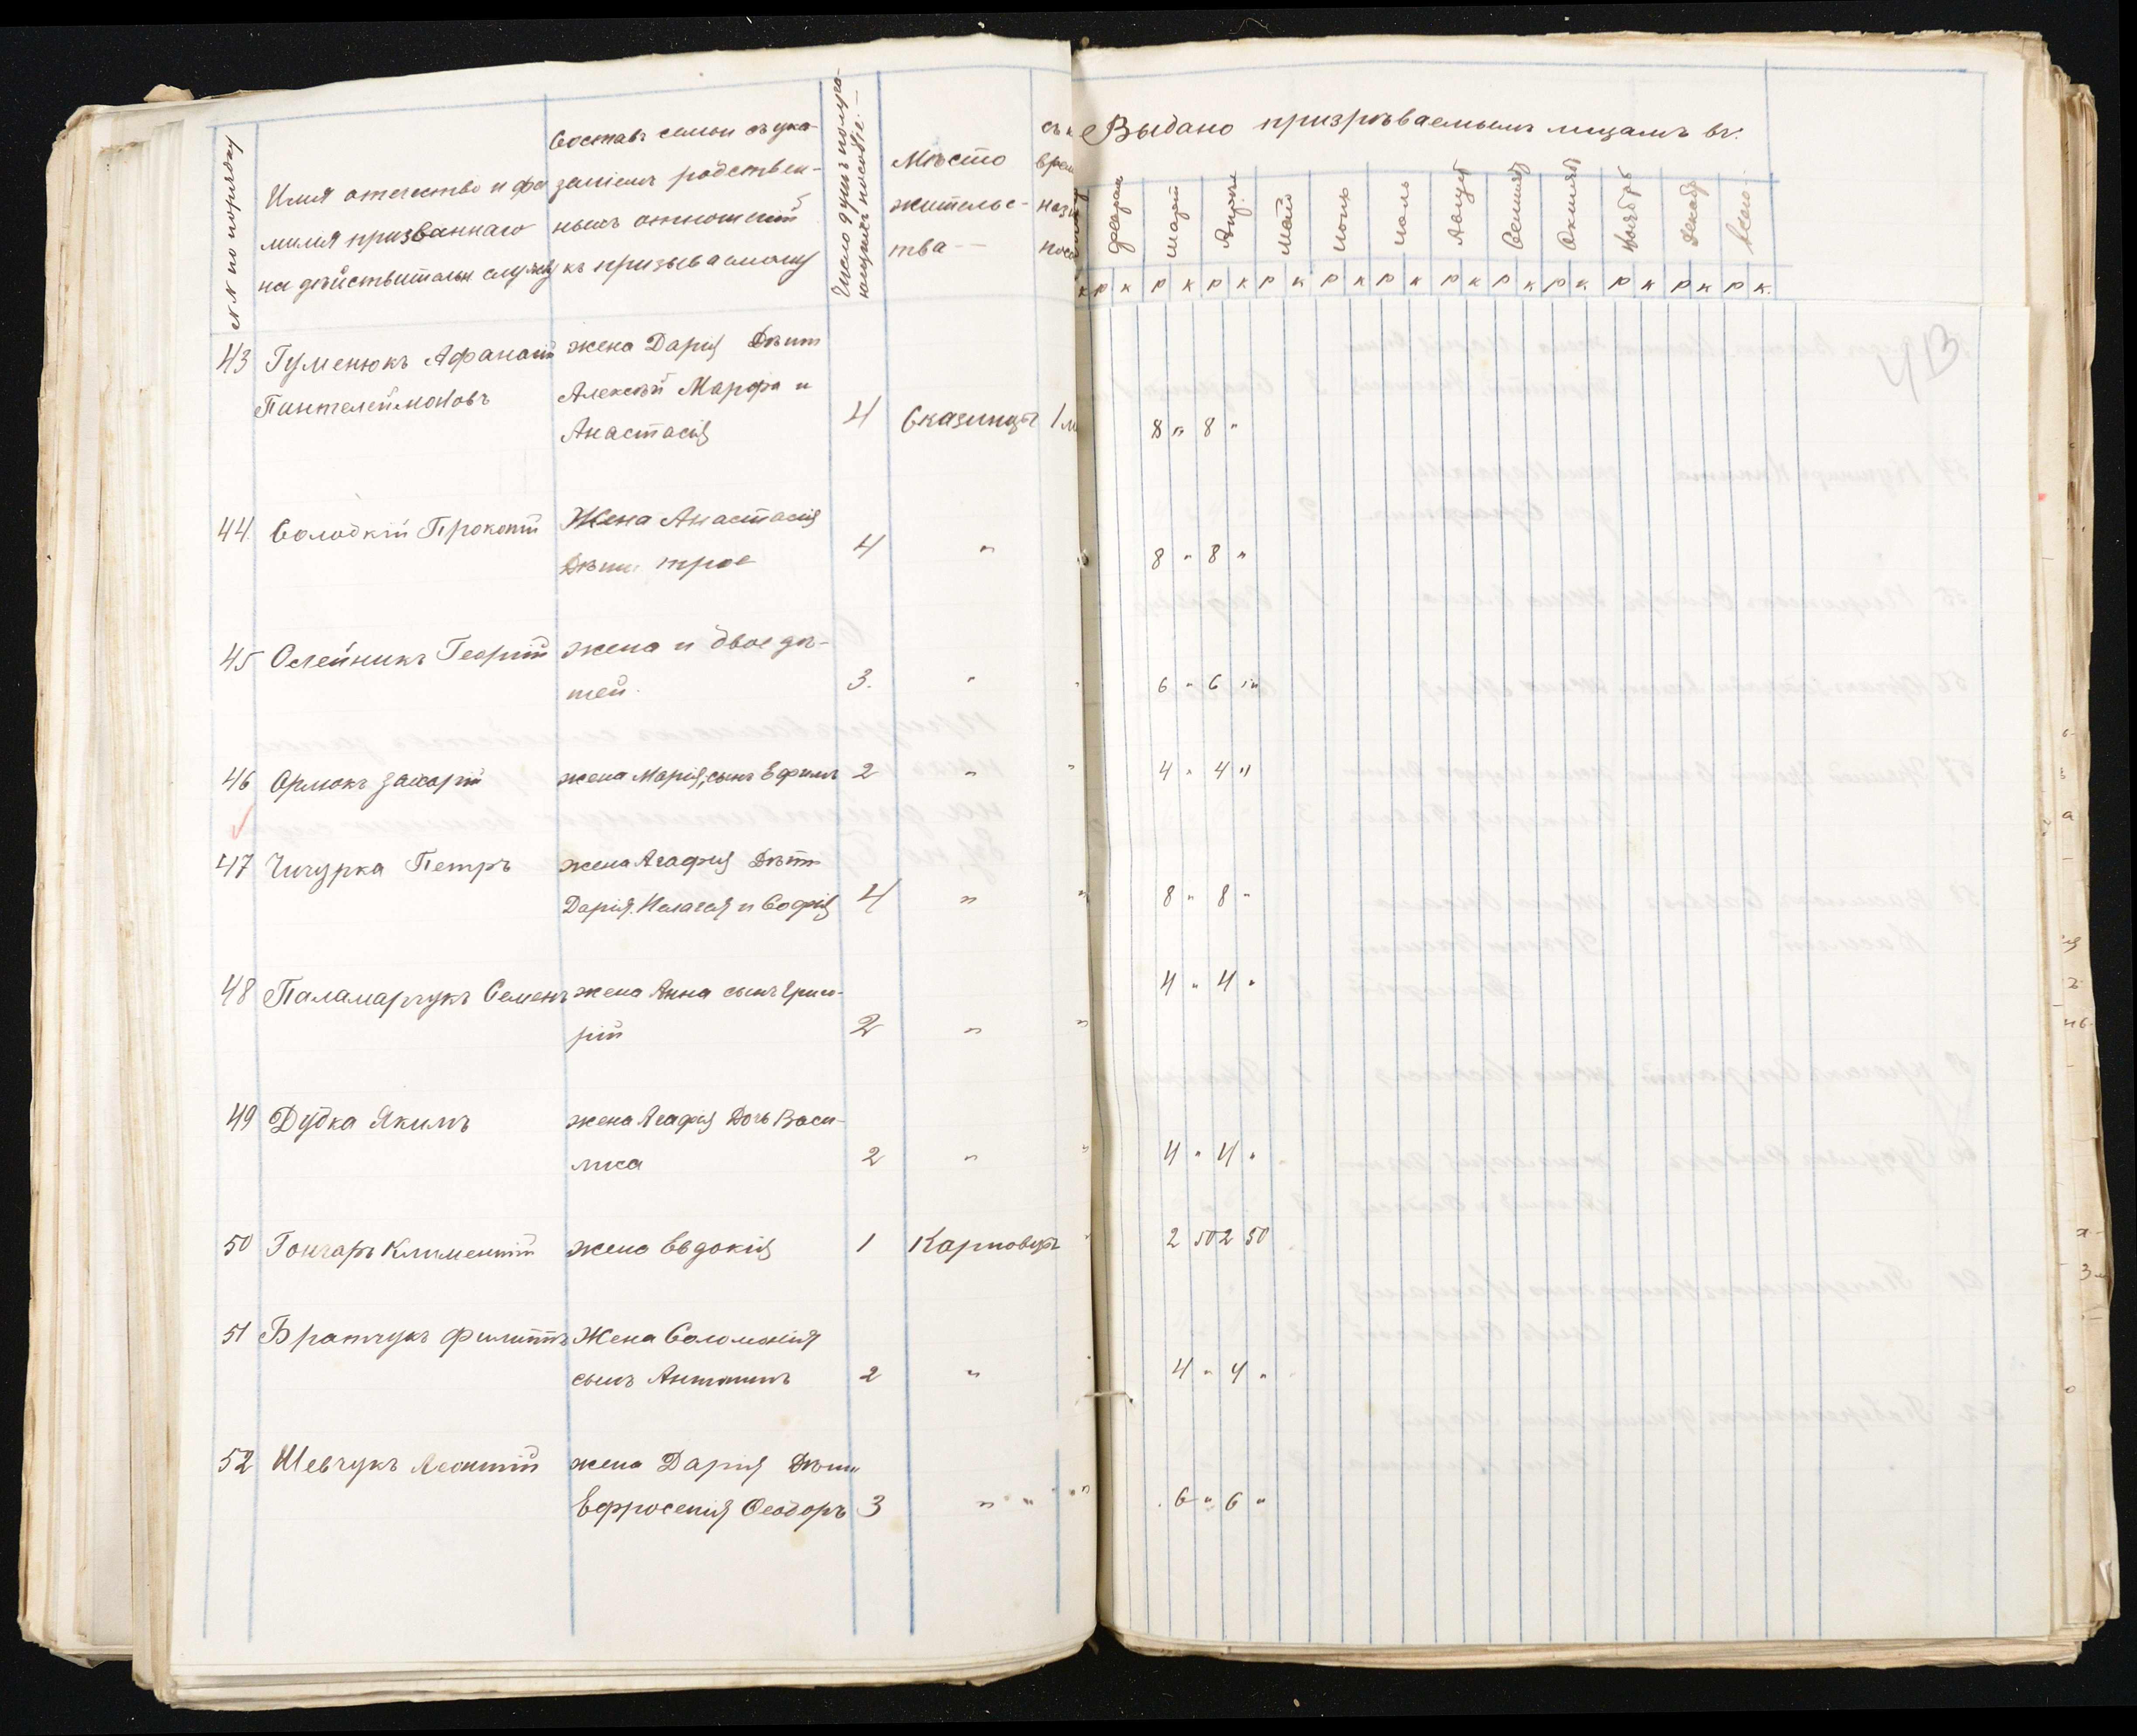 №№ по порядку
Имя отечество и фа
милия призваннаго
на действительн службу
Составъ семьи съ ука-
занiемъ родствен-
ныхъ отношенiй
къ призываемому
Число душъ получа-
ющихъ пособiе.
Мѣсто
жительс-
тва
съ к
врем
назн
посо
Выдано призрѣваемымъ лицамъ въ:
Февраль Мартъ Апрѣль Май Iюнь Iюль Августъ Сентябр Октябр Ноябрь Декабр Всего
к р к р к р к р к р к р к р к р к р к р к р к р к.
43 Гуменюкъ Афанасiй жена Дарiя Дѣти
Пантелеймоновъ Алексѣй Марфа и
Анастасiя 4 Сказинцы 1 м 8 " 8 "
44. Солодкiй Прокопiй Жена Анастасiя
Дѣти трое 4 " " 8 " 8 "
45 Олейникъ Георгiй жена и двое дѣ-
тей. 3. " " 6 " 6 "
46 Захарiй жена Марiя, сынъ Ефимъ 2 " " 4 " 4 "
47 Чичурка Петръ жена Агафiя Дѣти
Дарiя. Пелагея и Софiя 4 " " 8 " 8 "
48 Паламарчукъ Семенъ жена Анна сынъ Григо- 4 " 4 "
рiй 2 " "
49 Дудка Якимъ жена Агафiя Дочь Васи-
лиса 2 " " 4 " 4 "
50 Гончаръ Климентiй жена Евдокiя 1 Карповцы " 2 50 2 50
51 Братчукъ Филиппъ Жена Соломонiя
сынъ Антонинъ 2 " " 4 " 4 "
52 Шевчукъ Леонтiй жена Дарiя Дѣти
Ефросенiя Ѳеодоръ 3 " " " 6 " 6 "